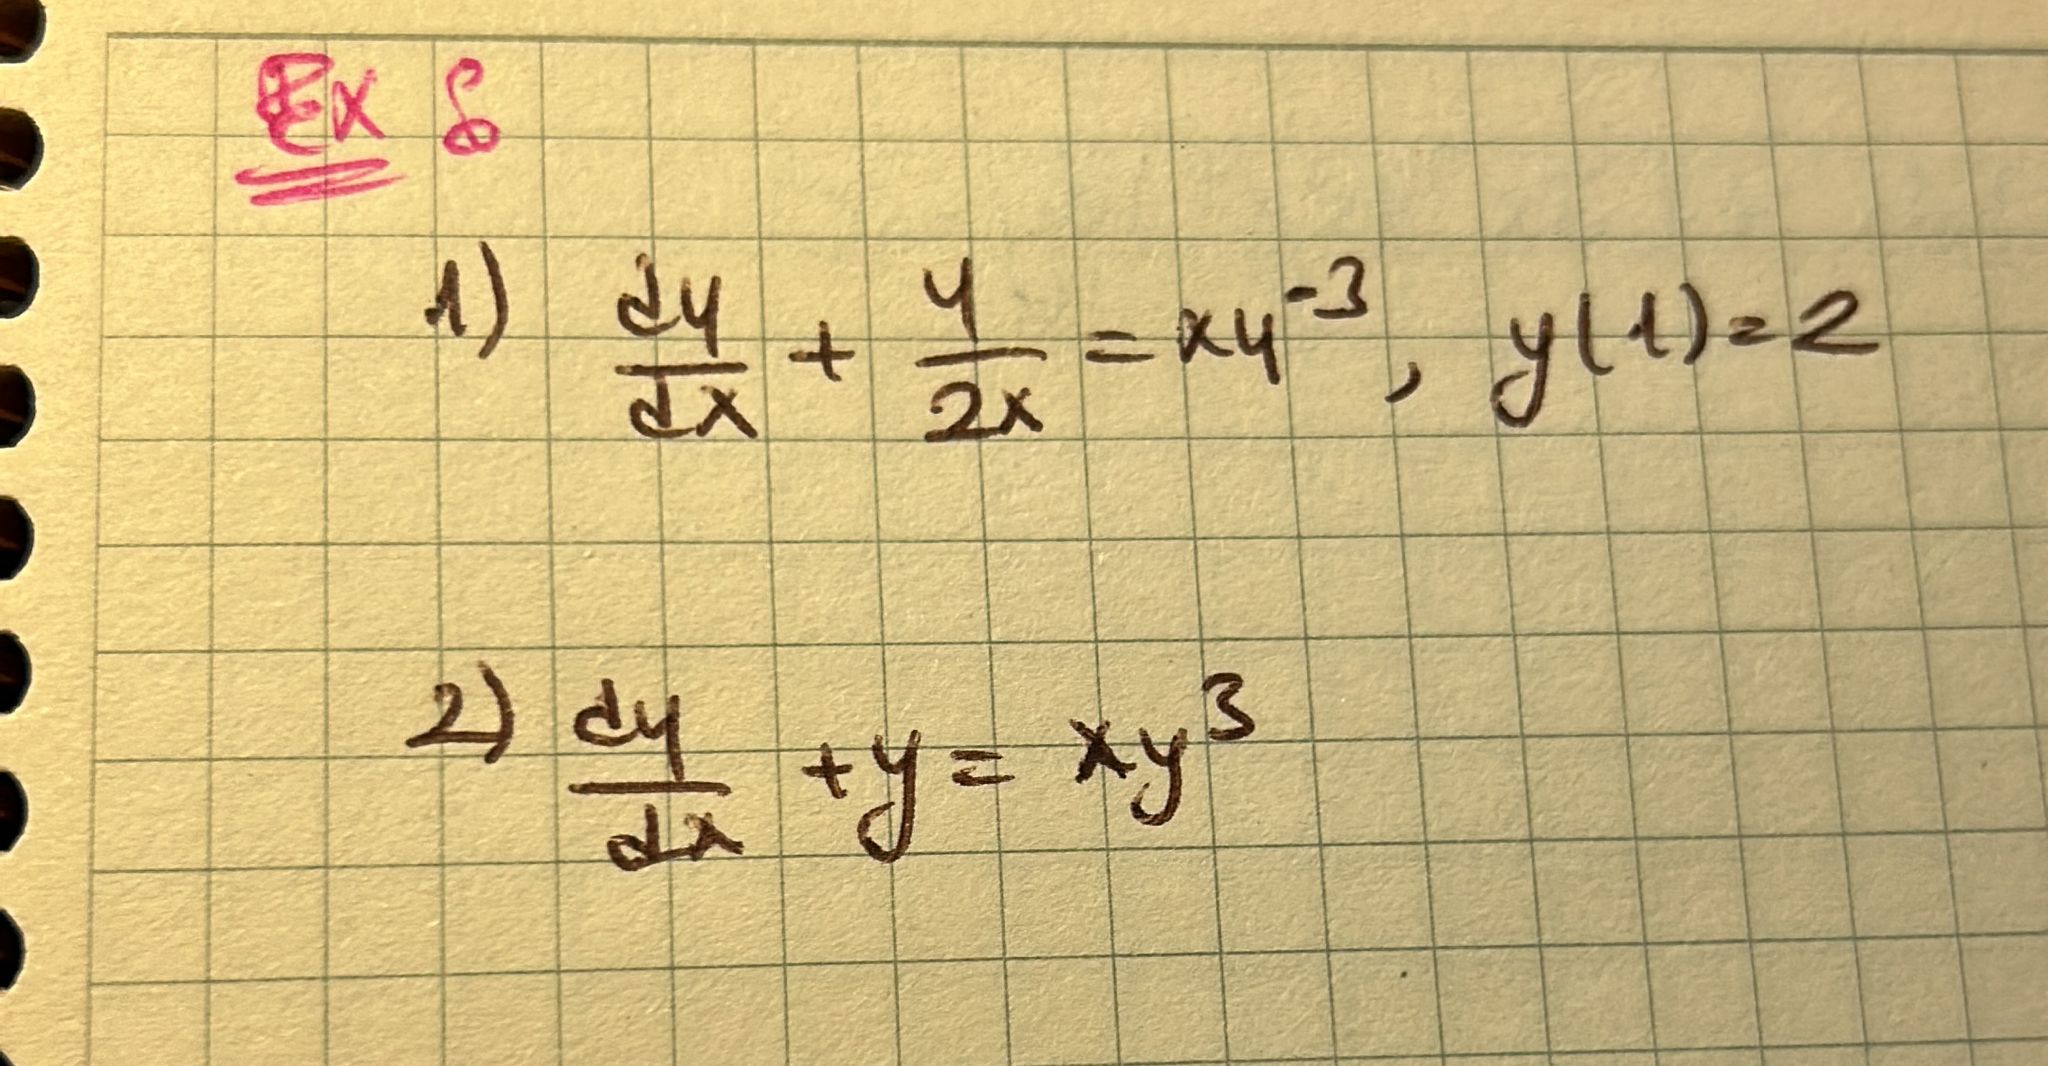 Ex 8
1) dy/dx + y/2x = xy⁻³, y(1)=2
2) dy/dx + y = xy³